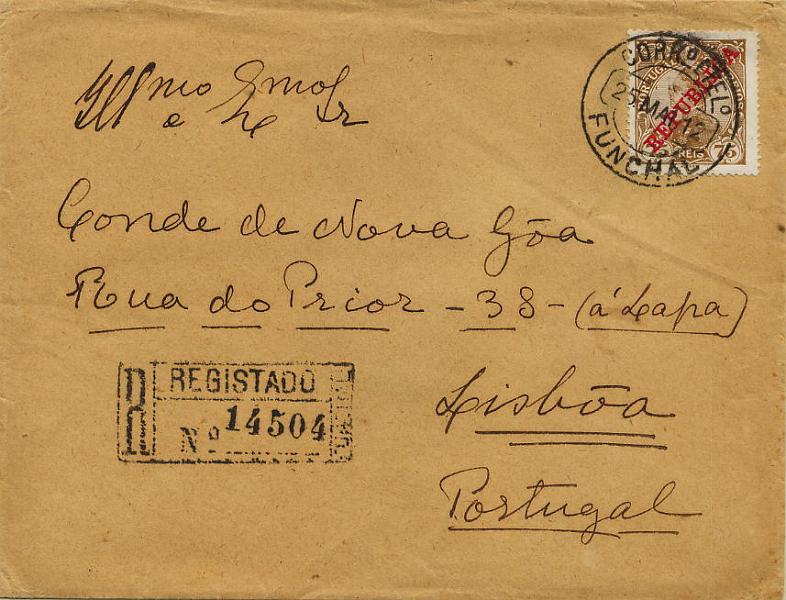 CORRº E TELº
25 MAR 12
FUNCHAL
REPUBLICA
75
Illmo Exmo Sr
Conde de Nova Gôa
Rua do Prior - 38 - (á Lapa)
R
REGISTADO
Nº 14504
Lisbôa
Portugal